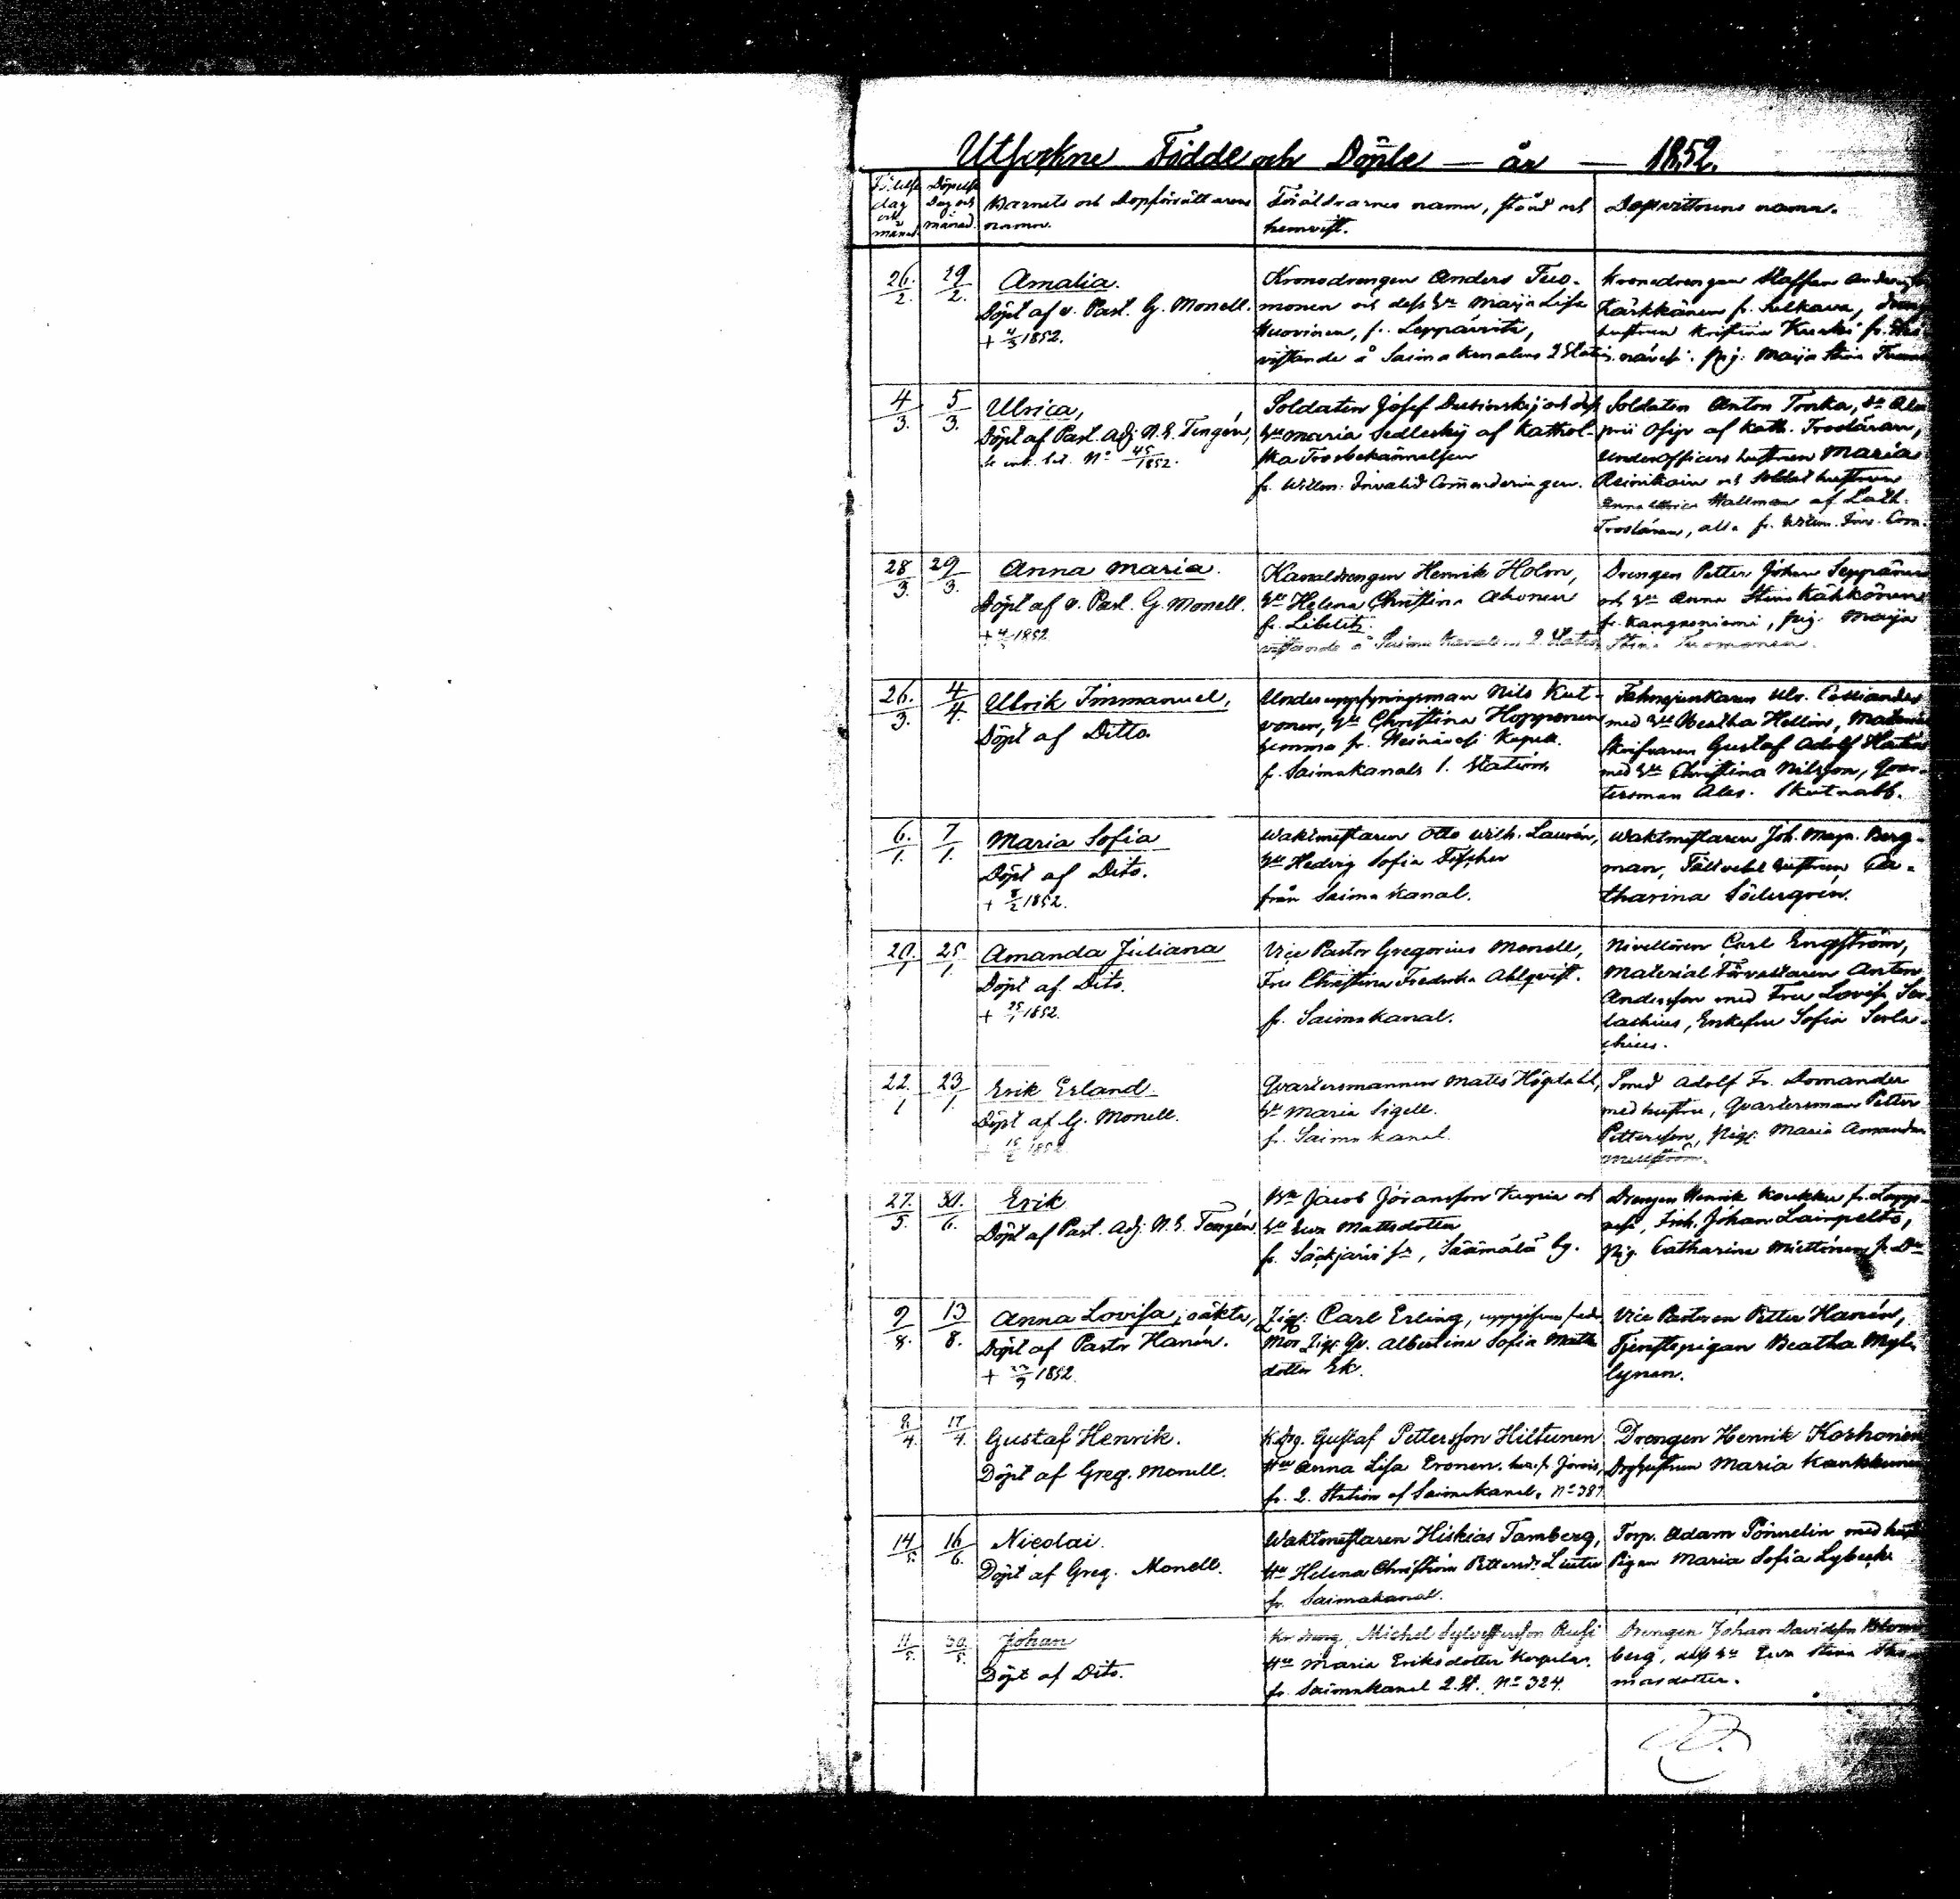 Utsockne Födde och Döpte — år — 1852.
Födelse dag och månad.
Döpelse Dag och månad.
Barnets och Dopförrättarens namn.
Föräldrarnes namn, stånd och hemvist.
Dopvittnens namn.
26./2. 29/2.
Amalia.
Döpt af v. Past. G. Monell.
+ 4/3 1852.
Kronodrengen Anders Tuo-
monen och dess Hu Maija Lisa
Huovinen, fr. Leppävirta,
vistande å Saima kanalens 2 Station.
Kronodrengen Staffan Andersson
Kärkkänen fr. Sulkava,
hustrun Kristina
näsesi. pig. Maija Stina
4/3. 5/3.
Ulrica,
Döpt af Past. Adj. N. E. Tengén,
se int. bil. No 45/1852.
Soldaten Josef Dubinskij och dess
Hu Maria Sedleskij af Kathol-
ska Trosbekännelsen
fr. Willm. Invalid Commenderingen.
Soldaten Anton Tonka, do
af Kath. Trosläran,
UnderOfficers hustrun Maria
Reinikain och Soldat hustrun
Anna Ulrica Hallman af Luth.
Trosläran, alla fr. Willm. Inv. Com.
28/3. 29/3.
Anna Maria.
Döpt af v. Past. G. Monell.
+ 1852
Kanaldrengen Henrik Holm,
Hu Helena Christina Ahonen
fr. Libelitz.
vistande å Saima Kanalens 2. Station
Drengen Petter Johan Seppänen
och Hu Anna Stina Kähkönen
fr. Kangasniemi, pig. Maija
Stina Tuomonen.
26./3. 4/4.
Ulrik Immanuel,
Döpt af Ditto.
Underuppsyningsman Nils Kut-
vonen, Hu Christina Hopponen
hemma fr. Heinävesi Kapell.
fr. Saimakanals 1. Station.
Fahnejunkaren Ulr. Costiander
med Hu Beatha Hellin,
Skrifvaren Gustaf Adolf
med Hu Christina Nilsson, Qvar-
tersman Alex. Skutnabb.
6./1. 7/1.
Maria Sofia
Döpt af Dito.
+ 8/2 1852.
Waktmestaren Otto Wilh. Laurén,
Hu Hedvig Sofia Fischer
från Saima Kanal.
Waktmestaren Joh. Magn. Berg-
man, hustrun Ca-
tharina Södergrén.
20./1 25/1.
Amanda Juliana
Döpt af Dito.
+ 25/ 1852.
Vice Pastor Gregorius Monell,
Fru Christina Fredrika Ahlqvist.
fr. Saimakanal.
Nivellören Carl Engström,
Material Förvaltaren Anton
Andersson med Fru Lovisa Ser-
lachius, Enkefru Sofia Serla-
chius.
22./1 23/1.
Erik Erland
Döpt af G. Monell.
+ 15/2 1852.
Qvartersmannen Matts Högdahl,
Hu Maria Sigell.
fr. Saima kanal.
Smed Adolf Fr. Domander
med hustru, Qvartersman Petter
Pettersson, Pig. Maria Amanda
27./5. 30./6.
Erik
Döpt af Past. Adj. N. E. Tengén
Bn Jacob Johansson Kupia och
Hu Eva Mattsdotter
fr. Säckjärvi sn, Säämälä by.
Drengen Henrik Koukku fr. Lapp-
vesi, Johan Lainpelto,
Pig. Catharina Miettinen fr. Do
9/8. 13/8.
Anna Lovisa, oäkta,
Döpt af Pastor Hanén.
+ 1852.
Carl Erling, uppgifven fader
Mor Albertina Sofia Matts
dotter Ek.
Vice Pastoren Petter Hanén,
Tjenstepigan Beatha Myl-
lynen.
8/4. 17/4.
Gustaf Henrik.
Döpt af Greg. Monell.
K. drg. Gustaf Pettersson Hiltunen
Hu Anna Lisa Eronen.
fr. 2. Station af Saimakanal, No 387
Drengen Henrik Korhonen
Drghustrun Maria Kankkunen
14/5. 16/6.
Nicolai.
Döpt af Greg. Monell.
Waktmestaren Hiskias Tamberg,
Hu Helena Christina Pettersdr
fr. Saimakanal.
Torp. Adam Pönnelin med hustru
Pigan Maria Sofia Lybeck
11/5. 30/5.
Johan
Döpt af Dito.
Kr. dreng. Michel Sylvestersson Rusi
Hu Maria Eriksdotter
fr. Saimakanal 2. St. No 324.
Drengen Johan Davidsson Blom-
berg, dess Hu Eva Stina Tho-
masdotter.